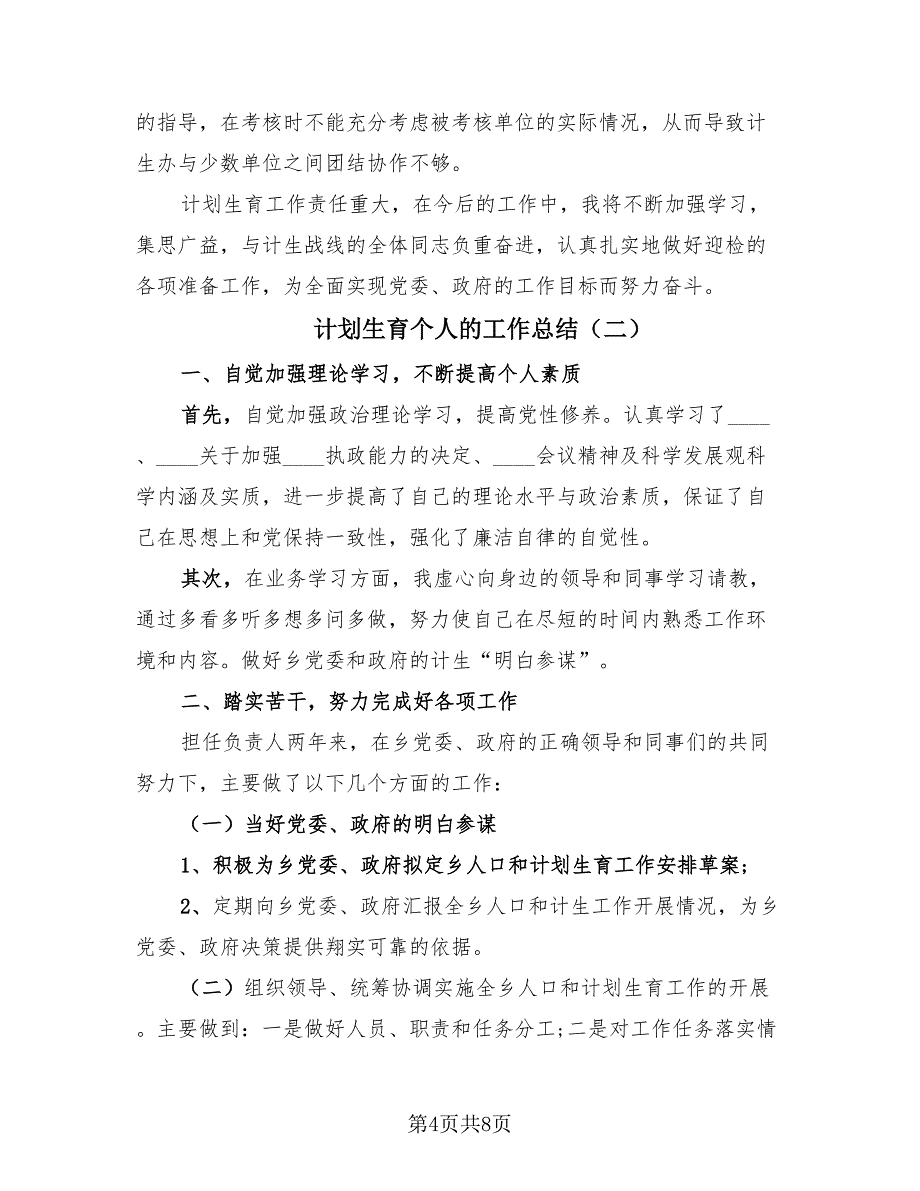 的指导，在考核时不能充分考虑被考核单位的实际情况，从而导致计
生办与少数单位之间团结协作不够。
计划生育工作责任重大，在今后的工作中，我将不断加强学习，
集思广益，与计生战线的全体同志负重奋进，认真扎实地做好迎检的
各项准备工作，为全面实现党委、政府的工作目标而努力奋斗。
计划生育个人的工作总结（二）
一、自觉加强理论学习，不断提高个人素质
首先，自觉加强政治理论学习，提高党性修养。认真学习了____
、____关于加强____执政能力的决定、____会议精神及科学发展观科
学内涵及实质，进一步提高了自己的理论水平与政治素质，保证了自
己在思想上和党保持一致性，强化了廉洁自律的自觉性。
其次，在业务学习方面，我虚心向身边的领导和同事学习请教，
通过多看多听多想多问多做，努力使自己在尽短的时间内熟悉工作环
境和内容。做好乡党委和政府的计生“明白参谋”。
二、踏实苦干，努力完成好各项工作
担任负责人两年来，在乡党委、政府的正确领导和同事们的共同
努力下，主要做了以下几个方面的工作：
（一）当好党委、政府的明白参谋
1、积极为乡党委、政府拟定乡人口和计划生育工作安排草案;
2、定期向乡党委、政府汇报全乡人口和计生工作开展情况，为乡
党委、政府决策提供翔实可靠的依据。
（二）组织领导、统筹协调实施全乡人口和计划生育工作的开展
。主要做到：一是做好人员、职责和任务分工;二是对工作任务落实情
第4页共8页